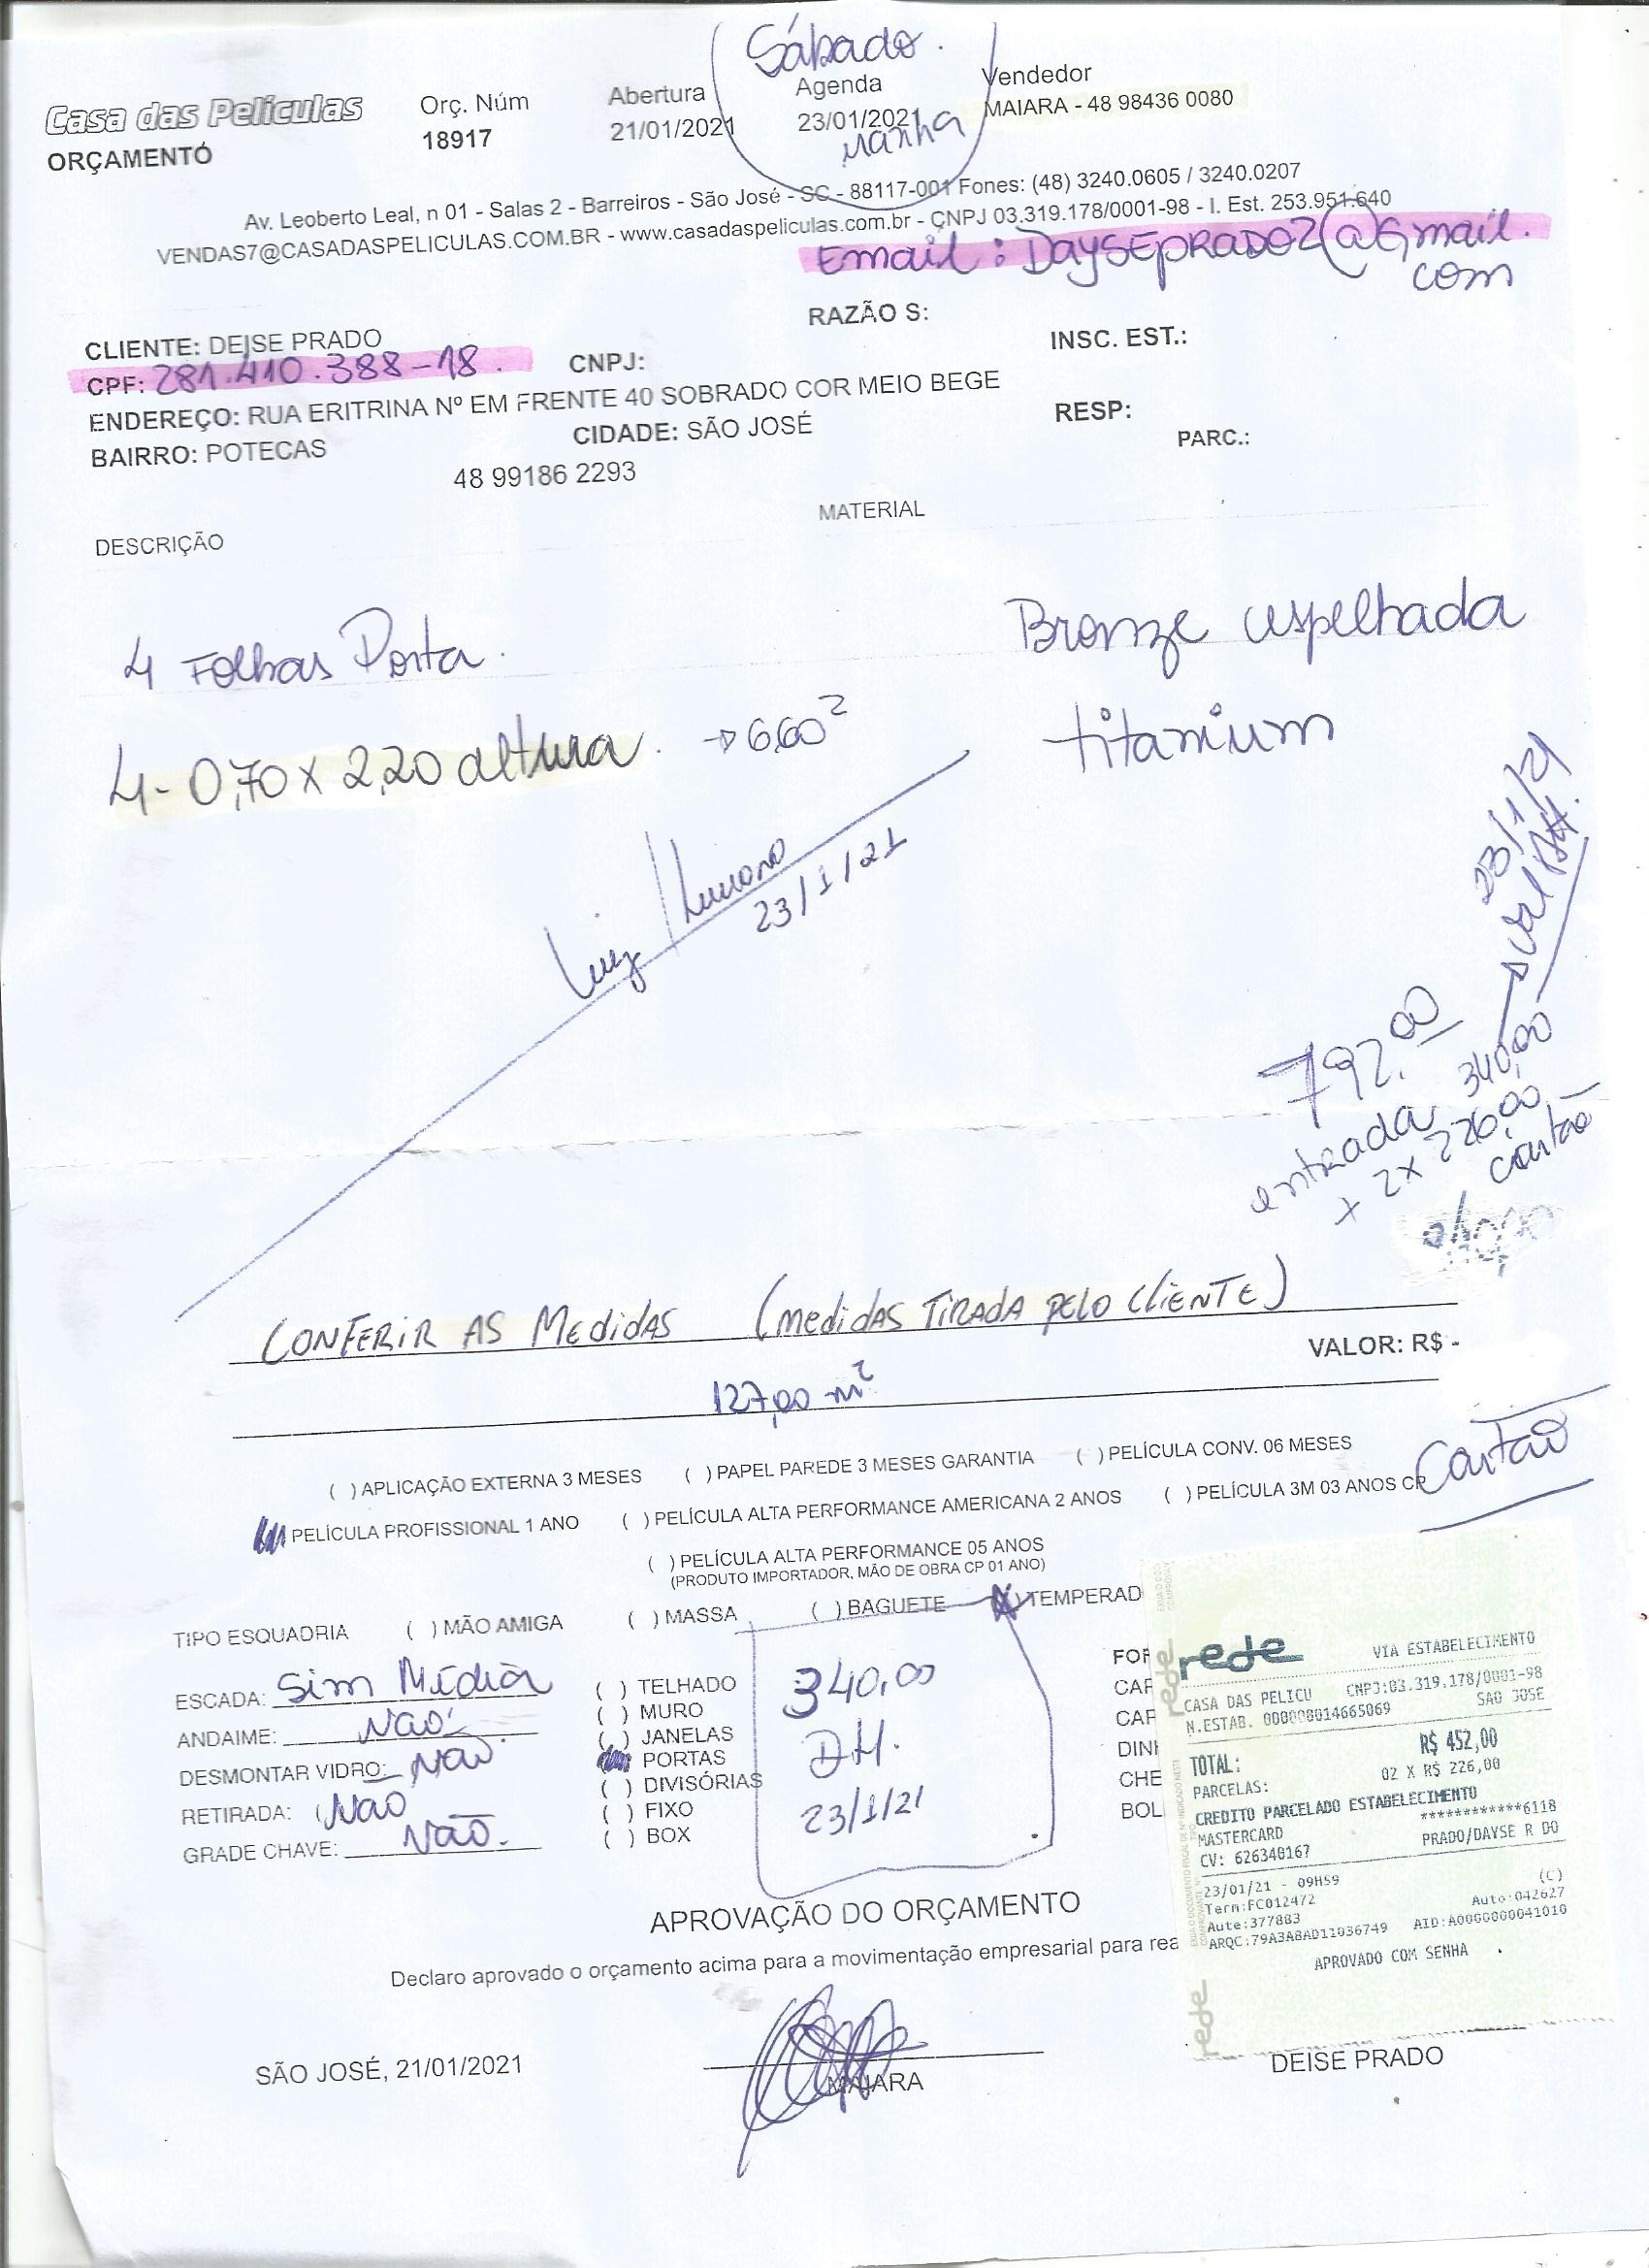 Sábado.
Casa das Películas
ORÇAMENTO
Orç. Núm
18917
Abertura
21/01/2021
Agenda
23/01/2021
manhã
Vendedor
MAIARA - 48 98436 0080
Av. Leoberto Leal, n 01 - Salas 2 - Barreiros - São José - SC - 88117-001 Fones: (48) 3240.0605 / 3240.0207
VENDAS7@CASADASPELICULAS.COM.BR - www.casadaspeliculas.com.br - CNPJ 03.319.178/0001-98 - I. Est. 253.951.640
Email: DaySEPRADO2@Gmail.
com
CLIENTE: DEISE PRADO
RAZÃO S:
CPF: 281.410.388-18.
CNPJ:
INSC. EST.:
ENDEREÇO: RUA ERITRINA Nº EM FRENTE 40 SOBRADO COR MEIO BEGE
BAIRRO: POTECAS
CIDADE: SÃO JOSÉ
RESP:
PARC.:
48 99186 2293
DESCRIÇÃO
MATERIAL
4 Folhas Porta.
Bronze espelhada
4- 0,70 x 2,20 altura. → 6,60²
titanium
Luiz / Luciano
23/1/21
23/1/21
792,00
entrada 340,00
+ 2x 226,00
cartão
CONFERIR AS MEdidAS (MEdidAS TIRADA PELO CLIENTE)
VALOR: R$ -
127,00 m²
( ) APLICAÇÃO EXTERNA 3 MESES ( ) PAPEL PAREDE 3 MESES GARANTIA ( ) PELÍCULA CONV. 06 MESES
Cartão
PELÍCULA PROFISSIONAL 1 ANO ( ) PELÍCULA ALTA PERFORMANCE AMERICANA 2 ANOS ( ) PELÍCULA 3M 03 ANOS CP
( ) PELÍCULA ALTA PERFORMANCE 05 ANOS
(PRODUTO IMPORTADOR, MÃO DE OBRA CP 01 ANO)
TIPO ESQUADRIA ( ) MÃO AMIGA ( ) MASSA ( ) BAGUETE (X) TEMPERAD
ESCADA: Sim Média
ANDAIME: NÃO
DESMONTAR VIDRO: NÃO
RETIRADA: (NÃO
GRADE CHAVE: NÃO.
( ) TELHADO
( ) MURO
( ) JANELAS
PORTAS
( ) DIVISÓRIAS
( ) FIXO
( ) BOX
340,00
DH.
23/1/21
FOR
CAR
CAR
DINH
CHE
BOL
rede
VIA ESTABELECIMENTO
CASA DAS PELICU CNPJ:03.319.178/0001-98
N.ESTAB. 000000014665069 SAO JOSE
TOTAL: R$ 452,00
PARCELAS: 02 X R$ 226,00
CREDITO PARCELADO ESTABELECIMENTO
MASTERCARD ************6118
CV: 626340167 PRADO/DAYSE R DO
23/01/21 - 09H59 (C)
Term:FC012472 Auto:042627
Aute:377883
ARQC:79A3A8AD11036749 AID:A0000000041010
APROVADO COM SENHA
rede
rede
APROVAÇÃO DO ORÇAMENTO
Declaro aprovado o orçamento acima para a movimentação empresarial para rea
SÃO JOSÉ, 21/01/2021
MAIARA
DEISE PRADO